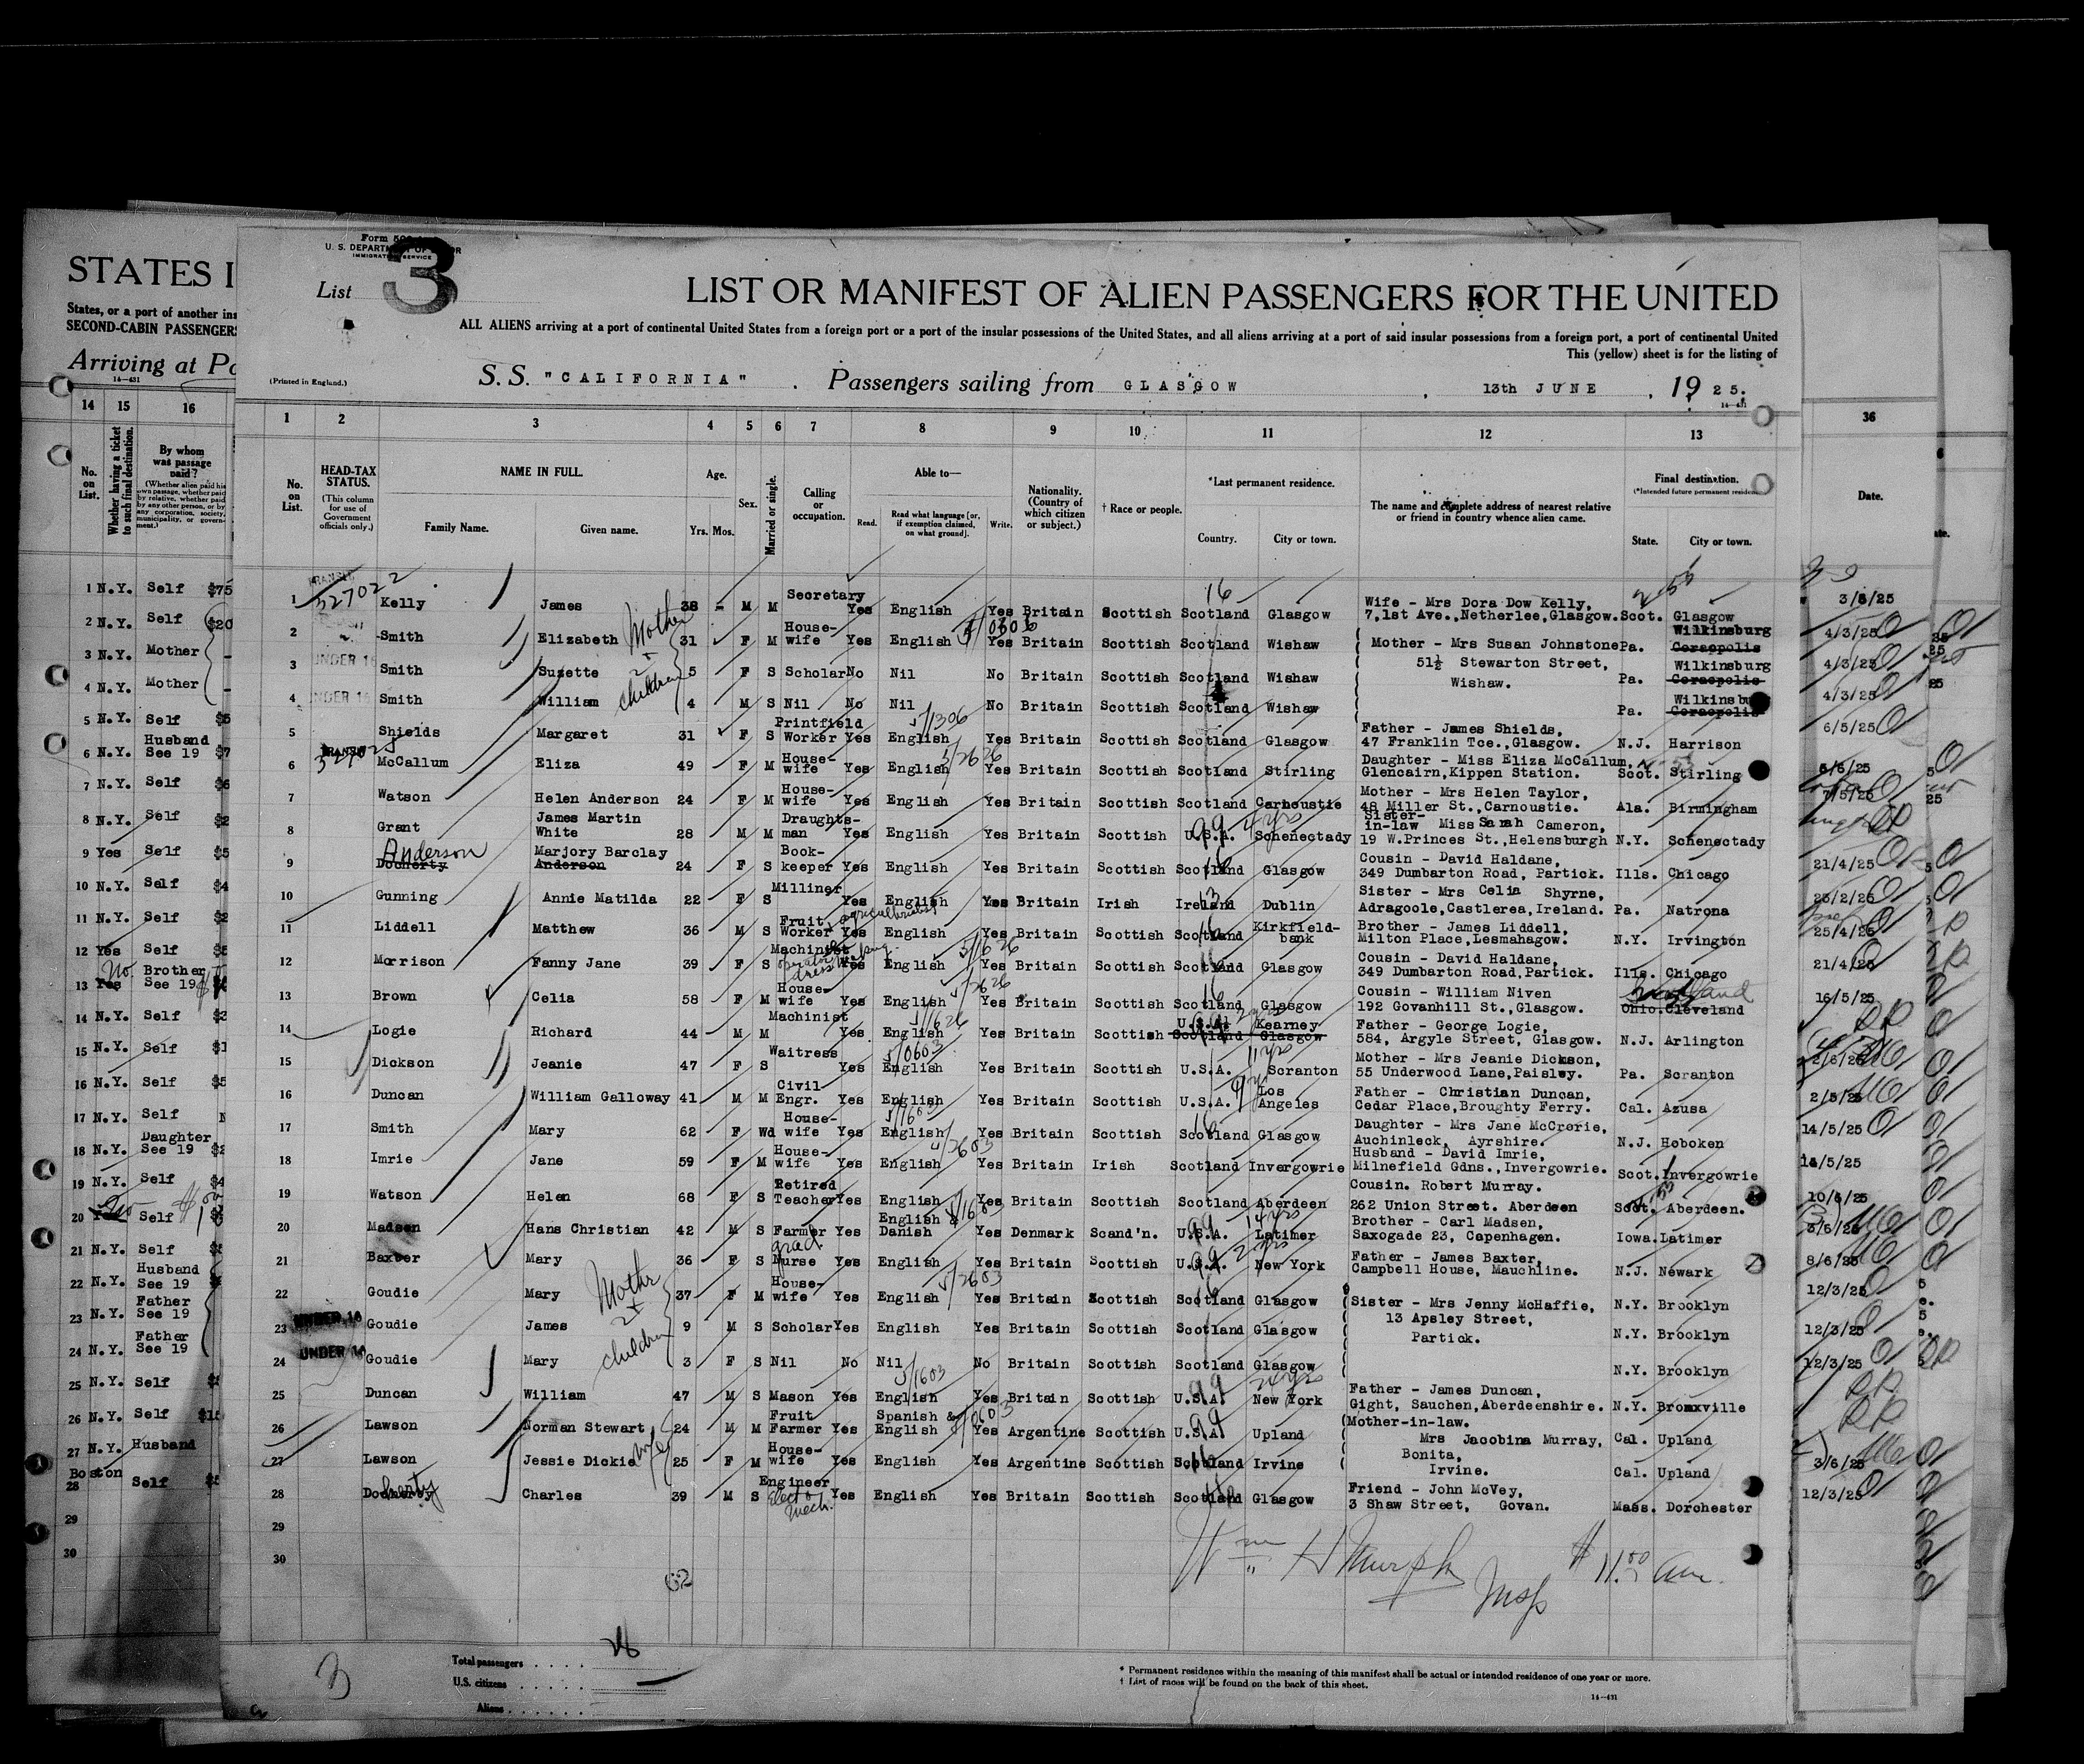 Form 500
U. S. DEPARTMENT OF LABOR
IMMIGRATION SERVICE
List 3
LIST OR MANIFEST OF ALIEN PASSENGERS FOR THE UNITED
ALL ALIENS arriving at a port of continental United States from a foreign port or a port of the insular possessions of the United States, and all aliens arriving at a port of said insular possessions from a foreign port, a port of continental United
This (yellow) sheet is for the listing of
(Printed in England.)
S.S. "CALIFORNIA" . Passengers sailing from GLASGOW , 13th JUNE , 1925.
14—431
1 2 3 4 5 6 7 8 9 10 11 12 13
No. on List.
HEAD-TAX STATUS.
(This column for use of Government officials only.)
NAME IN FULL.
Family Name. Given name.
Age.
Yrs. Mos.
Sex.
Married or single.
Calling or occupation.
Able to—
Read. Read what language [or, if exemption claimed, on what ground]. Write.
Nationality. (Country of which citizen or subject.)
† Race or people.
*Last permanent residence.
Country. City or town.
The name and complete address of nearest relative or friend in country whence alien came.
Final destination.
(*Intended future permanent residence)
State. City or town.
1 Kelly James 38 - M M Secretary Yes English Yes Britain Scottish Scotland Glasgow Wife - Mrs Dora Dow Kelly, 7,1st Ave.,Netherlee,Glasgow. Scot. Glasgow
2 Smith Elizabeth 31 F M House-wife Yes English Yes Britain Scottish Scotland Wishaw Mother - Mrs Susan Johnstone Pa. Wilkinsburg Coraopolis
3 UNDER 16 Smith Suzette 5 F S Scholar No Nil No Britain Scottish Scotland Wishaw 51½ Stewarton Street, Pa. Wilkinsburg Coraopolis
4 UNDER 16 Smith William 4 M S Nil No Nil No Britain Scottish Scotland Wishaw Wishaw. Pa. Wilkinsburg Coraopolis
Mother + 2 children
5 Shields Margaret 31 F S Printfield Worker Yes English Yes Britain Scottish Scotland Glasgow Father - James Shields, 47 Franklin Tce.,Glasgow. N.J. Harrison
6 McCallum Eliza 49 F M House-wife Yes English Yes Britain Scottish Scotland Stirling Daughter - Miss Eliza McCallum, Glencairn,Kippen Station. Scot. Stirling
7 Watson Helen Anderson 24 F M House-wife Yes English Yes Britain Scottish Scotland Carnoustie Mother - Mrs Helen Taylor, 48 Miller St.,Carnoustie. Ala. Birmingham
8 Grant James Martin White 28 M M Draughts-man Yes English Yes Britain Scottish U.S.A. 4 yrs Schenectady Sister-in-law Miss Sarah Cameron, 19 W.Princes St.,Helensburgh N.Y. Schenectady
9 Anderson Docherty Marjory Barclay Anderson 24 F S Book-keeper Yes English Yes Britain Scottish Scotland Glasgow Cousin - David Haldane, 349 Dumbarton Road, Partick. Ills. Chicago
10 Gunning Annie Matilda 22 F S Milliner Yes English Yes Britain Irish Ireland Dublin Sister - Mrs Celia Shyrne, Adragoole,Castlerea,Ireland. Pa. Natrona
11 Liddell Matthew 36 M S Fruit Worker agriculturist Yes English Yes Britain Scottish Scotland Kirkfield-bank Brother - James Liddell, Milton Place,Lesmahagow. N.Y. Irvington
12 Morrison Fanny Jane 39 F S Machinist Yes English Yes Britain Scottish Scotland Glasgow Cousin - David Haldane, 349 Dumbarton Road,Partick. Ills. Chicago
13 Brown Celia 58 F M House-wife Yes English Yes Britain Scottish Scotland Glasgow Cousin - William Niven 192 Govanhill St.,Glasgow. Ohio. Cleveland
14 Logie Richard 44 M M Machinist Yes English Yes Britain Scottish U.S.A. Kearney Scotland Glasgow Father - George Logie, 584, Argyle Street, Glasgow. N.J. Arlington
15 Dickson Jeanie 47 F S Waitress Yes English Yes Britain Scottish U.S.A. 11 yrs Scranton Mother - Mrs Jeanie Dickson, 55 Underwood Lane,Paisley. Pa. Scranton
16 Duncan William Galloway 41 M M Civil Engr. Yes English Yes Britain Scottish U.S.A. Los Angeles Father - Christian Duncan, Cedar Place,Broughty Ferry. Cal. Azusa
17 Smith Mary 62 F Wd House-wife Yes English Yes Britain Scottish Scotland Glasgow Daughter - Mrs Jane McCrorie, Auchinleck, Ayrshire. N.J. Hoboken
18 Imrie Jane 59 F M House-wife Yes English Yes Britain Irish Scotland Invergowrie Husband - David Imrie, Milnefield Gdns.,Invergowrie. Scot. Invergowrie
19 Watson Helen 68 F S Retired Teacher Yes English Yes Britain Scottish Scotland Aberdeen Cousin. Robert Murray. 262 Union Street. Aberdeen Scot. Aberdeen.
20 Madsen Hans Christian 42 M S Farmer Yes English & Danish Yes Denmark Scand'n. U.S.A. 14 yrs Latimer Brother - Carl Madsen, Saxogade 23, Copenhagen. Iowa. Latimer
21 Baxter Mary 36 F S grad. Nurse Yes English Yes Britain Scottish U.S.A. 2 yrs New York Father - James Baxter, Campbell House, Mauchline. N.J. Newark
22 Goudie Mary 37 F M House-wife Yes English Yes Britain Scottish Scotland Glasgow Sister - Mrs Jenny McHaffie, N.Y. Brooklyn
23 UNDER 16 Goudie James 9 M S Scholar Yes English Yes Britain Scottish Scotland Glasgow 13 Apsley Street, N.Y. Brooklyn
24 UNDER 16 Goudie Mary 3 F S Nil No Nil No Britain Scottish Scotland Glasgow Partick. N.Y. Brooklyn
Mother + 2 children
25 Duncan William 47 M S Mason Yes English Yes Britain Scottish U.S.A. New York Father - James Duncan, Gight, Sauchen,Aberdeenshire. N.Y. Bronxville
26 Lawson Norman Stewart 24 M M Fruit Farmer Yes Spanish & English Yes Argentine Scottish U.S.A. Upland Mother-in-law. Mrs Jacobina Murray, Cal. Upland
27 Lawson Jessie Dickie wife 25 F M House-wife Yes English Yes Argentine Scottish Scotland Irvine Bonita, Irvine. Cal. Upland
28 Docherty Charles 39 M S Engineer Elect. Mech. Yes English Yes Britain Scottish Scotland Glasgow Friend - John McVey, 3 Shaw Street, Govan. Mass. Dorchester
29
30
62
Wm H Murphy
11.00 am.
Total passengers 28
U.S. citizens
Aliens
3
* Permanent residence within the meaning of this manifest shall be actual or intended residence of one year or more.
† List of races will be found on the back of this sheet.
14—431
STATES I
States, or a port of another ins
SECOND-CABIN PASSENGERS
Arriving at Po
14—431
14 15 16
No. on List.
Whether having a ticket to such final destination.
By whom was passage paid?
(Whether alien paid his own passage, whether paid by relative, whether paid by any other person, or by any corporation, society, municipality, or government.)
1 N.Y. Self $75
2 N.Y. Self $20
3 N.Y. Mother -
4 N.Y. Mother -
5 N.Y. Self $5
6 N.Y. Husband See 19 $7
7 N.Y. Self $6
8 N.Y. Self $2
9 Yes Self $5
10 N.Y. Self $4
11 N.Y. Self $2
12 Yes Self $5
13 No Yes Brother See 19
14 N.Y. Self $3
15 N.Y. Self $1
16 N.Y. Self $5
17 N.Y. Self
18 N.Y. Daughter See 19 $2
19 N.Y. Self $4
20 No Yes Self
21 N.Y. Self
22 N.Y. Husband See 19
23 N.Y. Father See 19
24 N.Y. Father See 19
25 N.Y. Self
26 N.Y. Self $15
27 N.Y. Husband
28 Boston Self $5
29
30
36
Date.
3/6/25
4/3/25
4/3/25
4/3/25
6/5/25
6/6/25
7/5/25
21/4/25
25/2/25
25/4/25
21/4/25
16/5/25
2/6/25
2/5/25
14/5/25
14/5/25
10/6/25
3/6/25
8/6/25
12/3/25
12/3/25
12/3/25
3/6/25
12/3/25